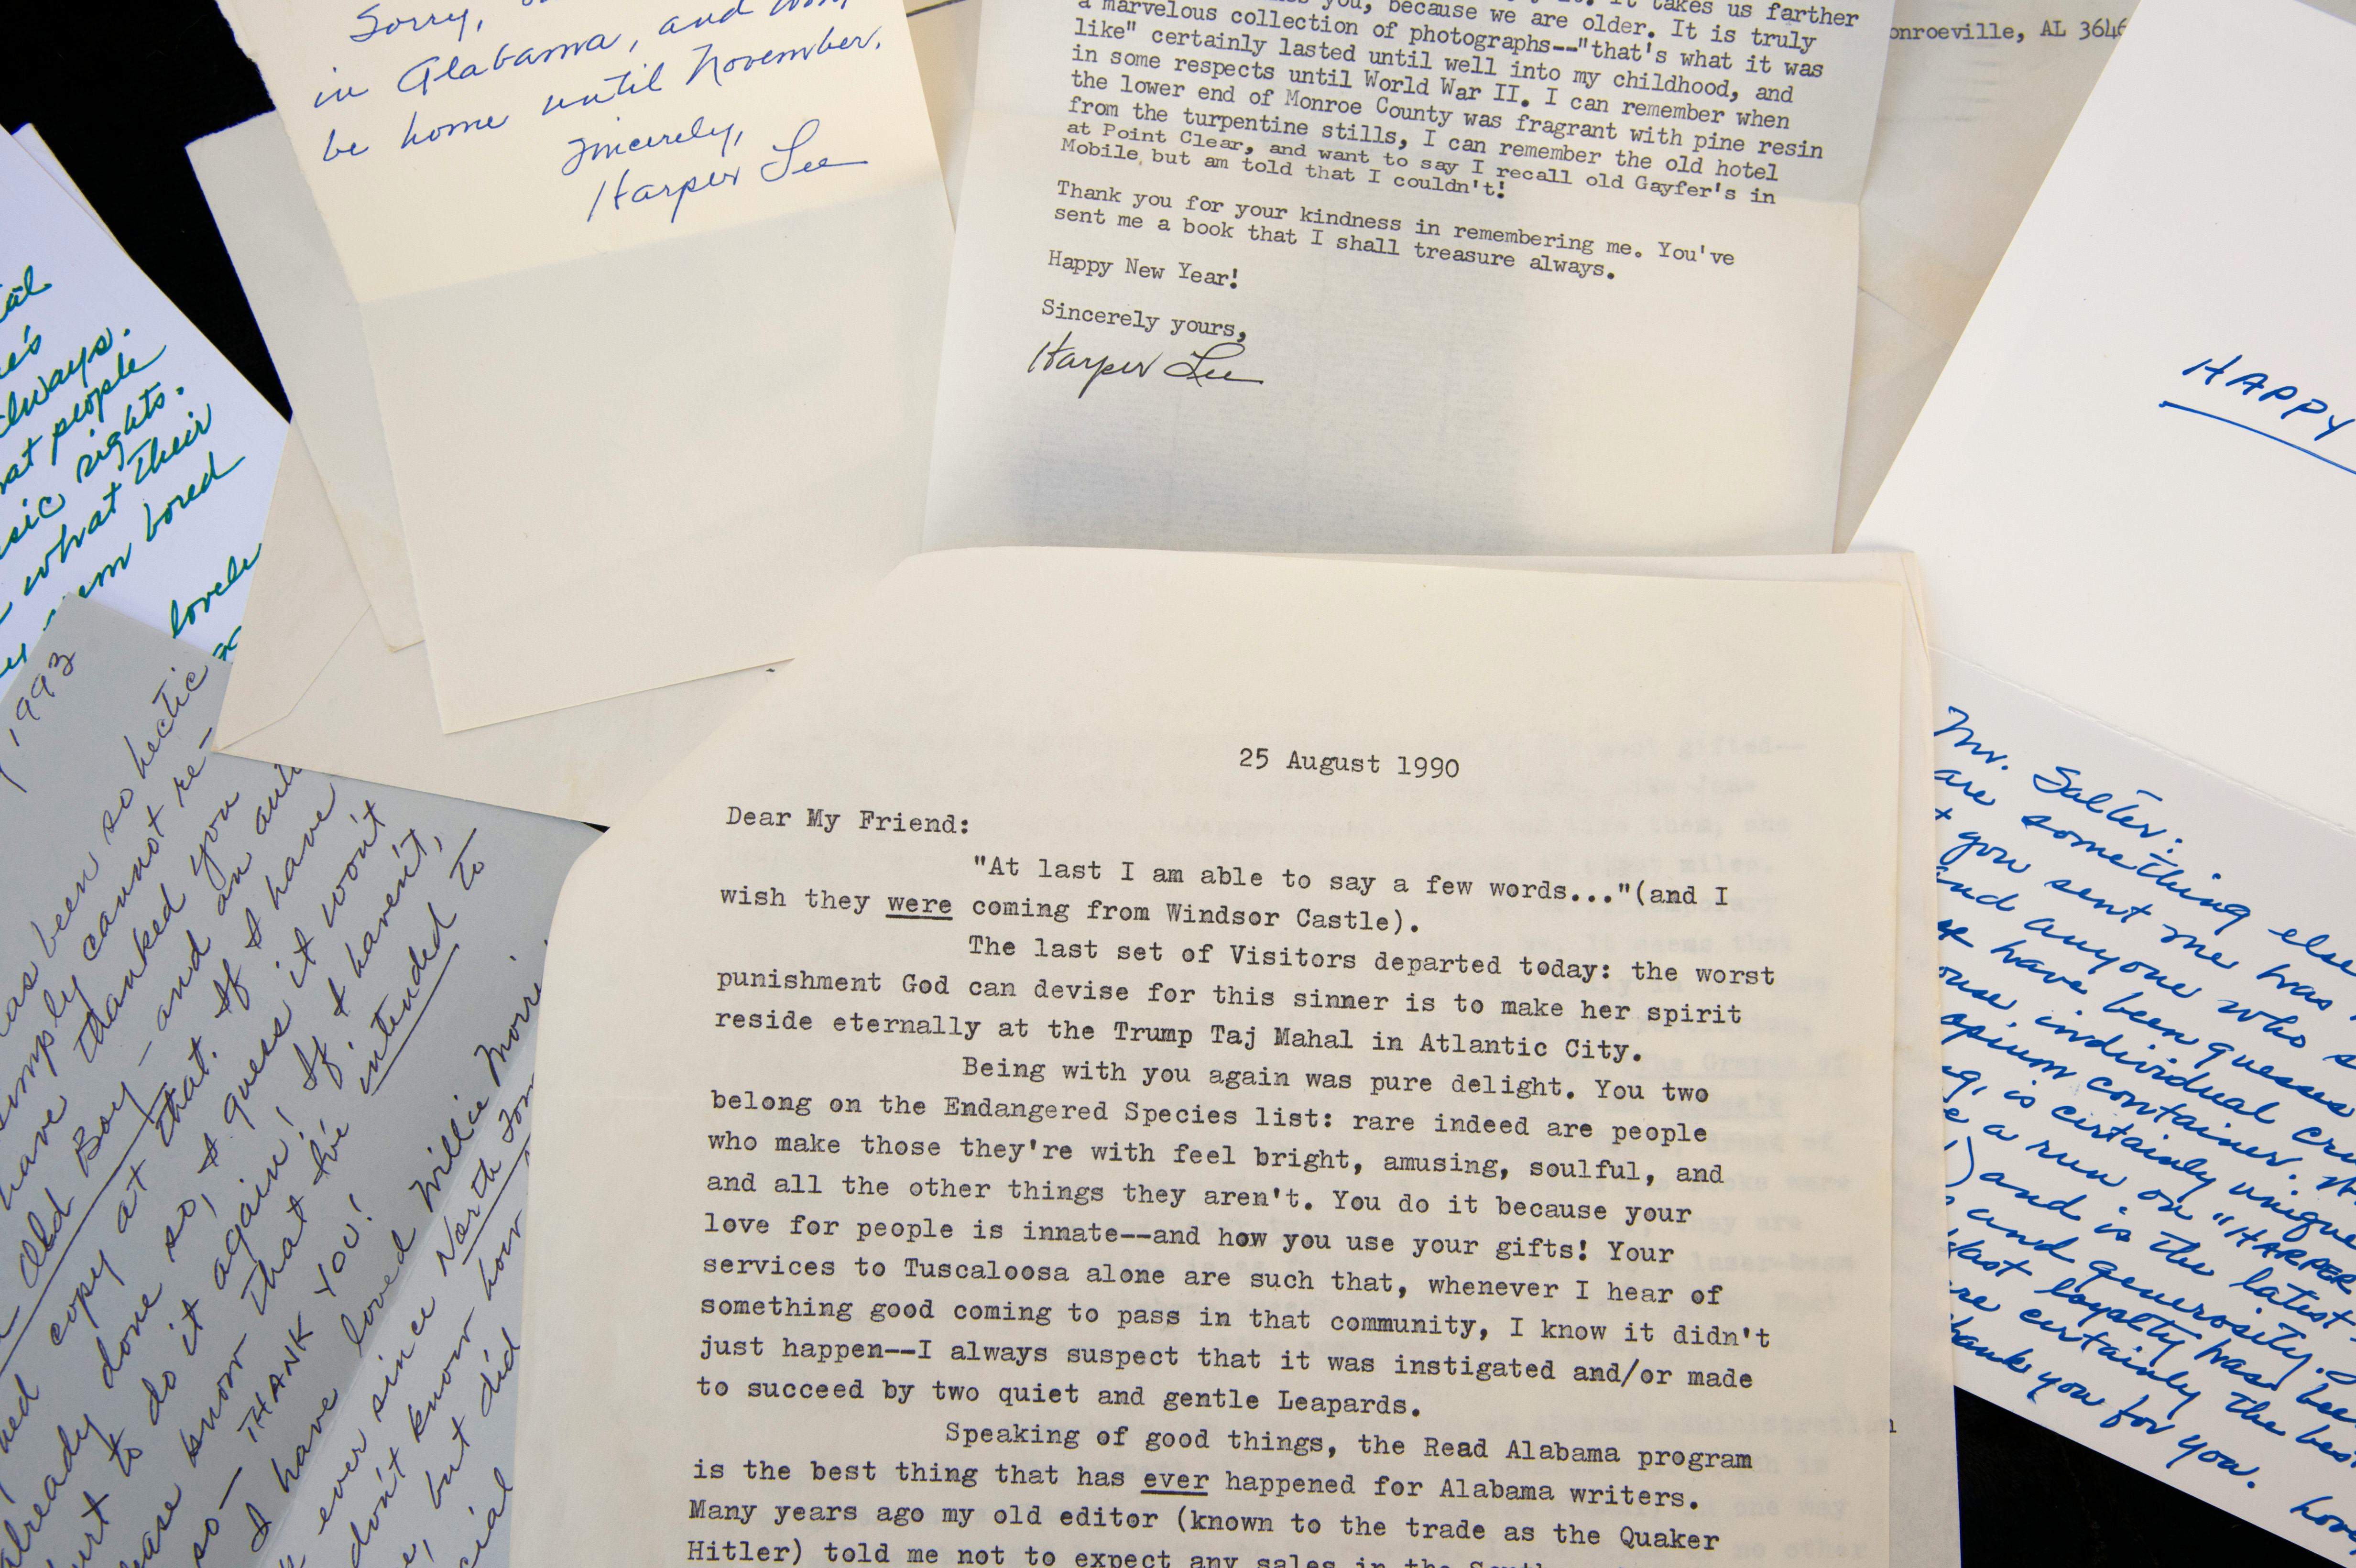 Sorry,
in Alabama, and won't
be home until November.
Sincerely,
Harper Lee
you, because we are older. It is truly
takes us farther
a marvelous collection of photographs--"that's what it was
like" certainly lasted until well into my childhood, and
in some respects until World War II. I can remember when
the lower end of Monroe County was fragrant with pine resin
from the turpentine stills, I can remember the old hotel
at Point Clear, and want to say I recall old Gayfer's in
Mobile, but am told that I couldn't!
Thank you for your kindness in remembering me. You've
sent me a book that I shall treasure always.
Happy New Year!
Sincerely yours,
Harper Lee
onroeville, AL 3646
HAPPY
always.
at people
sic rights.
what their
bored
lovely
1993
as been so hectic
simply cannot re-
have thanked you
Old Boy - and an
copy at that. If I have
already done so, I guess it won't
hurt to do it again! If I haven't,
please know that I've intended to
so — THANK YOU!
I have loved Willie Morri
ever since North Tow
don't know how
, but did
cial
25 August 1990
Dear My Friend:
"At last I am able to say a few words..."(and I
wish they were coming from Windsor Castle).
The last set of Visitors departed today: the worst
punishment God can devise for this sinner is to make her spirit
reside eternally at the Trump Taj Mahal in Atlantic City.
Being with you again was pure delight. You two
belong on the Endangered Species list: rare indeed are people
who make those they're with feel bright, amusing, soulful, and
and all the other things they aren't. You do it because your
love for people is innate--and how you use your gifts! Your
services to Tuscaloosa alone are such that, whenever I hear of
something good coming to pass in that community, I know it didn't
just happen--I always suspect that it was instigated and/or made
to succeed by two quiet and gentle Leapards.
Speaking of good things, the Read Alabama program
is the best thing that has ever happened for Alabama writers.
Many years ago my old editor (known to the trade as the Quaker
Hitler) told me not to expect any sales in the South
Mr. Salter:
are something else
you sent me was
and anyone who s
have been guesses
individual cru
opium container.
, is certainly unique
a run on "HARPER
) and is the latest
and generosity.
loyalty has bee
re certainly the best
hank you for you.
Love